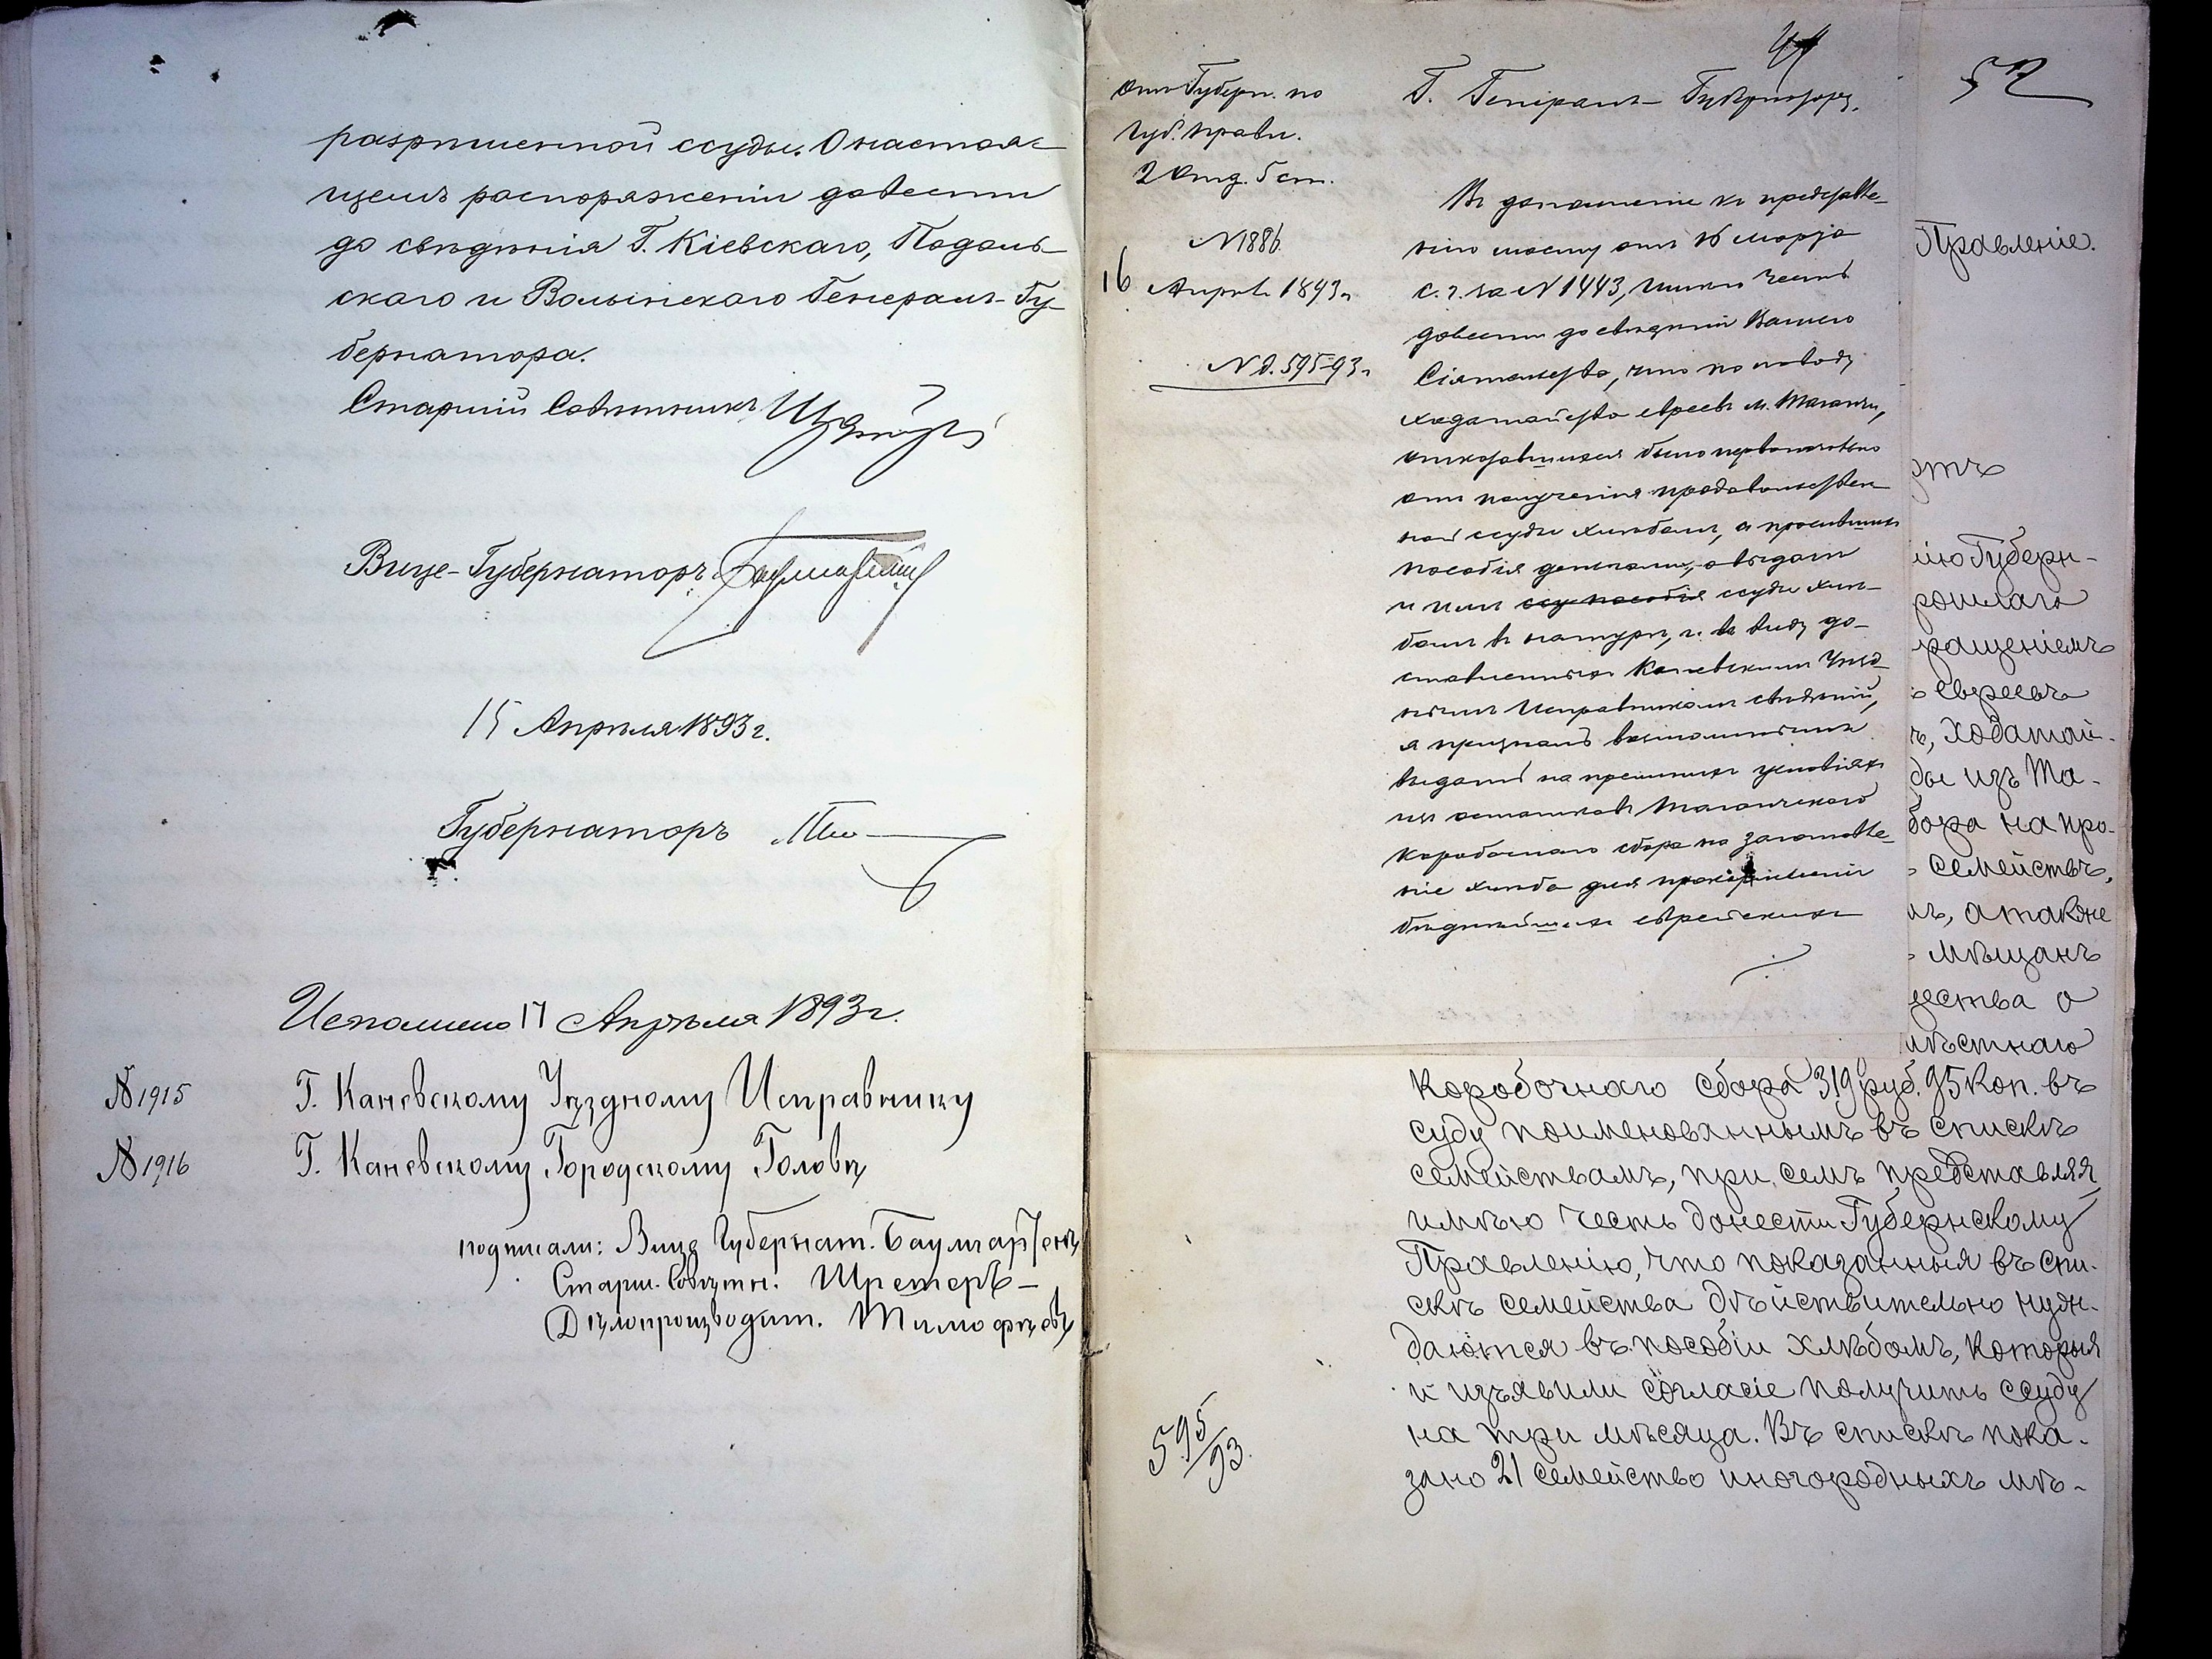 разрѣшенной ссуды. О настоя=
щемъ распоряженіи довести
до свѣдѣнія Г. Кіевскаго, Подоль-
скаго и Волынскаго Генералъ-Гу-
бернатора.
Старшій Совѣтникъ
Вице-Губернаторъ
15 Апрѣля 1893 г.
Губернаторъ
Исполнено 17 Апрѣля 1893 г.
№ 1915 Г. Каневскому Уѣздному Исправнику
№ 1916 Г. Каневскому Городскому Головѣ
подписали: Вице Губернат. Баумгартенъ
Старш. Совѣтн. Шретеръ-
Дѣлопроизводит. Тимофѣевъ
От Губерн. по
Губ. правл.
2 Отд. 5 ст.
№ 1886
16 Апрѣля 1893 г.
№ д. 595-93 г.
Г. Генералъ-Губернатору.
Въ дополненіе къ представле-
нію моему отъ 16 марта
с. г. за № 1443, имѣю честь
довести до свѣдѣнія Вашего
Сіятельства, что по поводу
ходатайства евреевъ м. Таганчи,
отказавшихся было первоначально
отъ полученія продовольствен-
ной ссуды хлѣбомъ, а просившихъ
пособія деньгами, о выдачѣ
и имъ ссуды хлѣ-
бомъ въ натурѣ, и въ виду до-
ставленныхъ Каневскимъ Уѣзд-
нымъ Исправникомъ свѣдѣній,
я призналъ возможнымъ
выдать на прежнихъ условіяхъ
изъ остатковъ Таганчскаго
коробочнаго сбора на заготовле-
ніе хлѣба для прокормленія
бѣднѣйшихъ еврейскихъ
52
Правленіе.
ртъ
нію Губерн-
рошлаго
ращеніемъ
евреевъ
ъ, ходатай-
ды изъ Та-
бора на про-
семействъ,
ъ, а также
мѣщанъ
ества о
мѣстнаго
Коробочнаго сбора 319 руб. 95 коп. въ
суду поименованнымъ въ спискѣ
семействамъ, при семъ представляя
имѣю честь донести Губернскому
Правленію, что показанныя въ спи-
скѣ семейства дѣйствительно нуж-
даются въ пособіи хлѣбомъ, которыя
и изъявили согласіе получить ссуду
на три мѣсяца. Въ спискѣ пока-
зано 21 семейство иногородныхъ мѣ-
595/93.